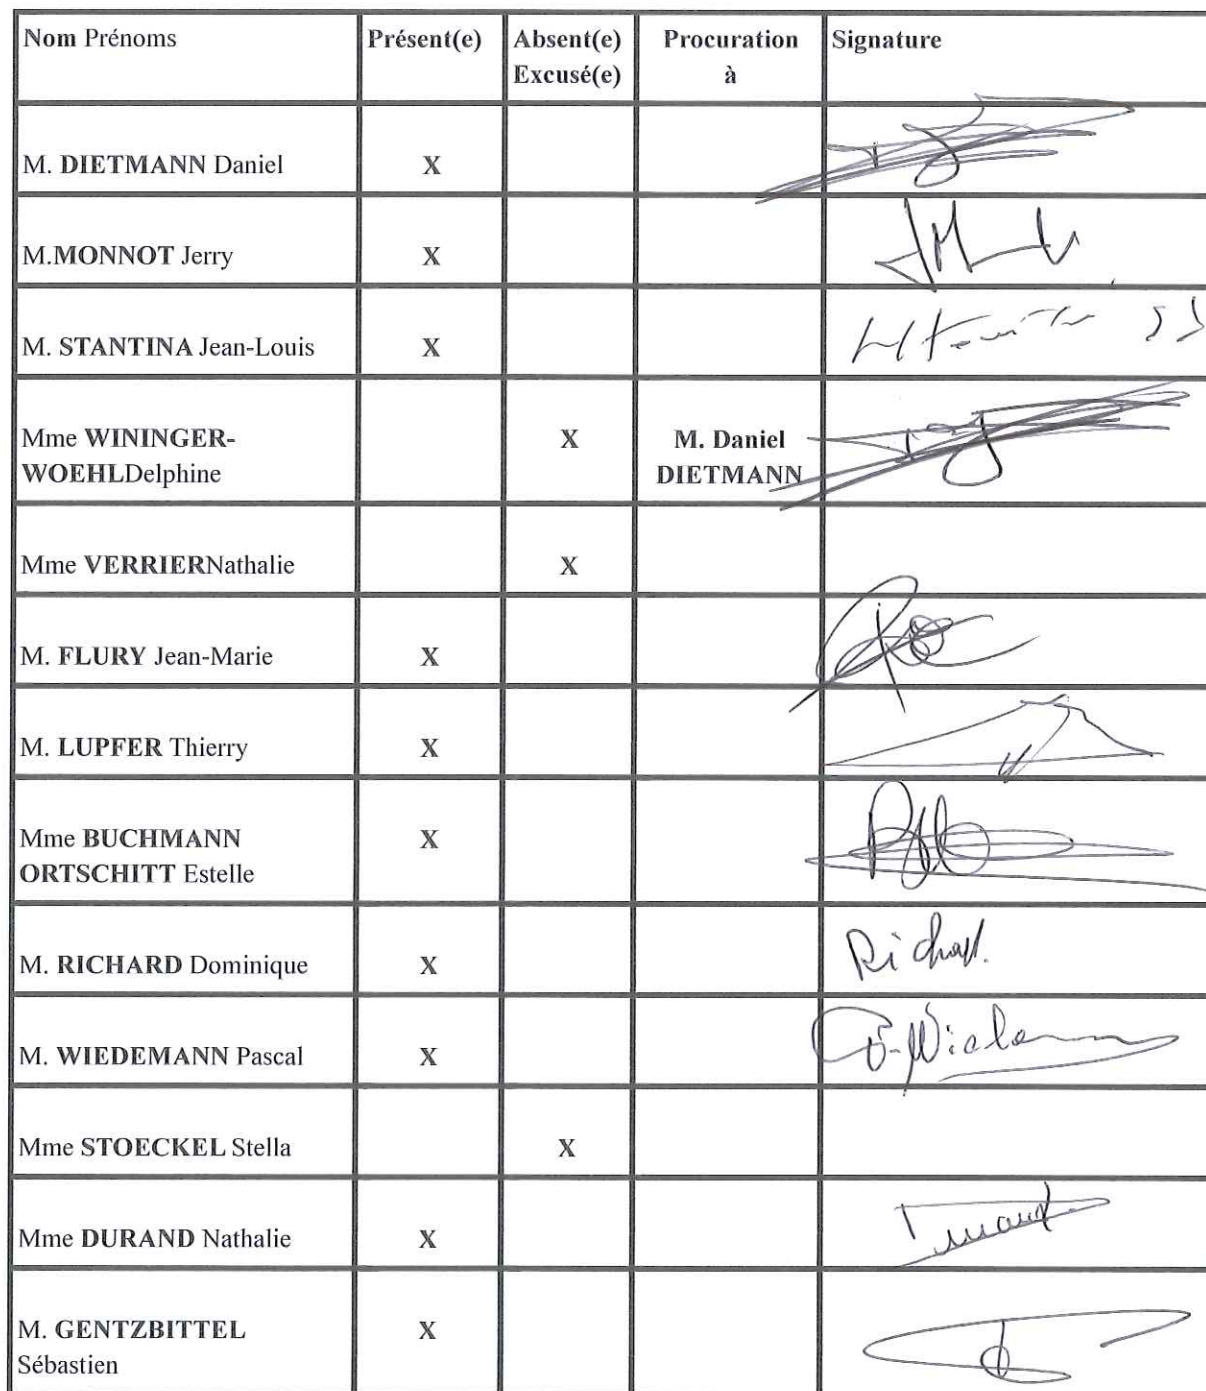 Nom Prénoms Présent(e) Absent(e) Procuration Signature
Excusé(e) à
M. DIETMANN Daniel X
M.MONNOT Jerry X
M. STANTINA Jean-Louis X
Mme WININGER- X M. Daniel
WOEHLDelphine DIETMANN
Mme VERRIERNathalie X
M. FLURY Jean-Marie X
M. LUPFER Thierry X
Mme BUCHMANN X
ORTSCHITT Estelle
M. RICHARD Dominique X Richard.
M. WIEDEMANN Pascal X
Mme STOECKEL Stella X
Mme DURAND Nathalie X
M. GENTZBITTEL X
Sébastien